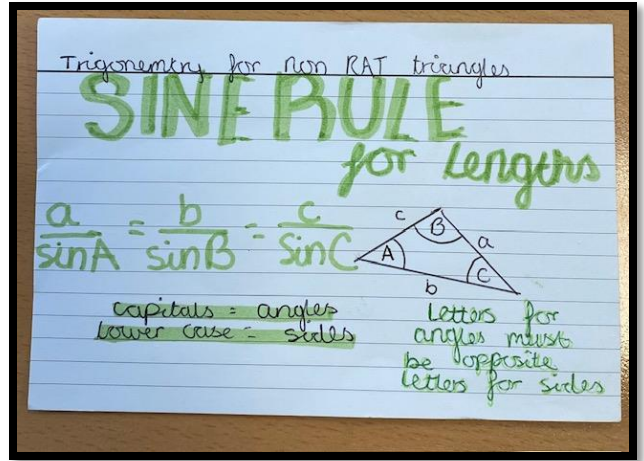 Trigonemtry for non RAT triangles
SINE RULE
for lengths
a/sinA = b/sinB = c/sinC
c
B
a
A
C
b
capitals = angles
lower case = sides
Letters for
angles must
be opposite
letters for sides